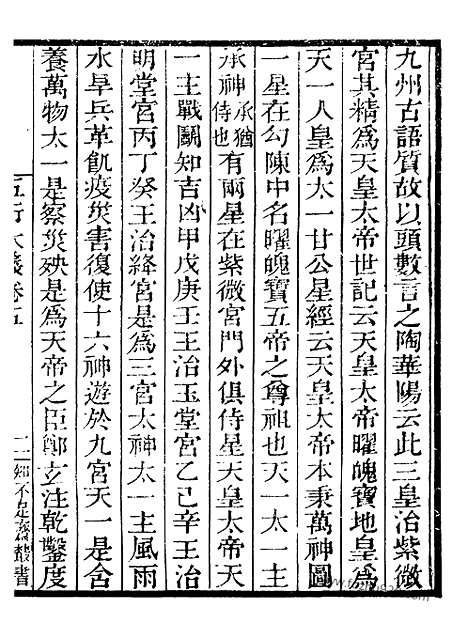 九州古語質故以頭數言之陶華陽云此三皇治紫微
宮其精爲天皇太帝世記云天皇太帝曜魄寶地皇爲
天一人皇爲太一甘公星經云天皇太帝本秉萬神圖
一星在勾陳中名曜魄寶五帝之尊祖也天一太一主
承神承猶侍也有兩星在紫微宮門外俱侍星天皇太帝天
一主戰鬭知吉凶甲戊庚壬王治玉堂宮乙己辛王治
明堂宮丙丁癸王治絳宮是爲三宮太神太一主風雨
水旱兵革飢疫災害復使十六神遊於九宮天一是含
養萬物太一是察災殃是爲天帝之臣鄭玄注乾鑿度
五行大義卷五
二
知不足齋叢書